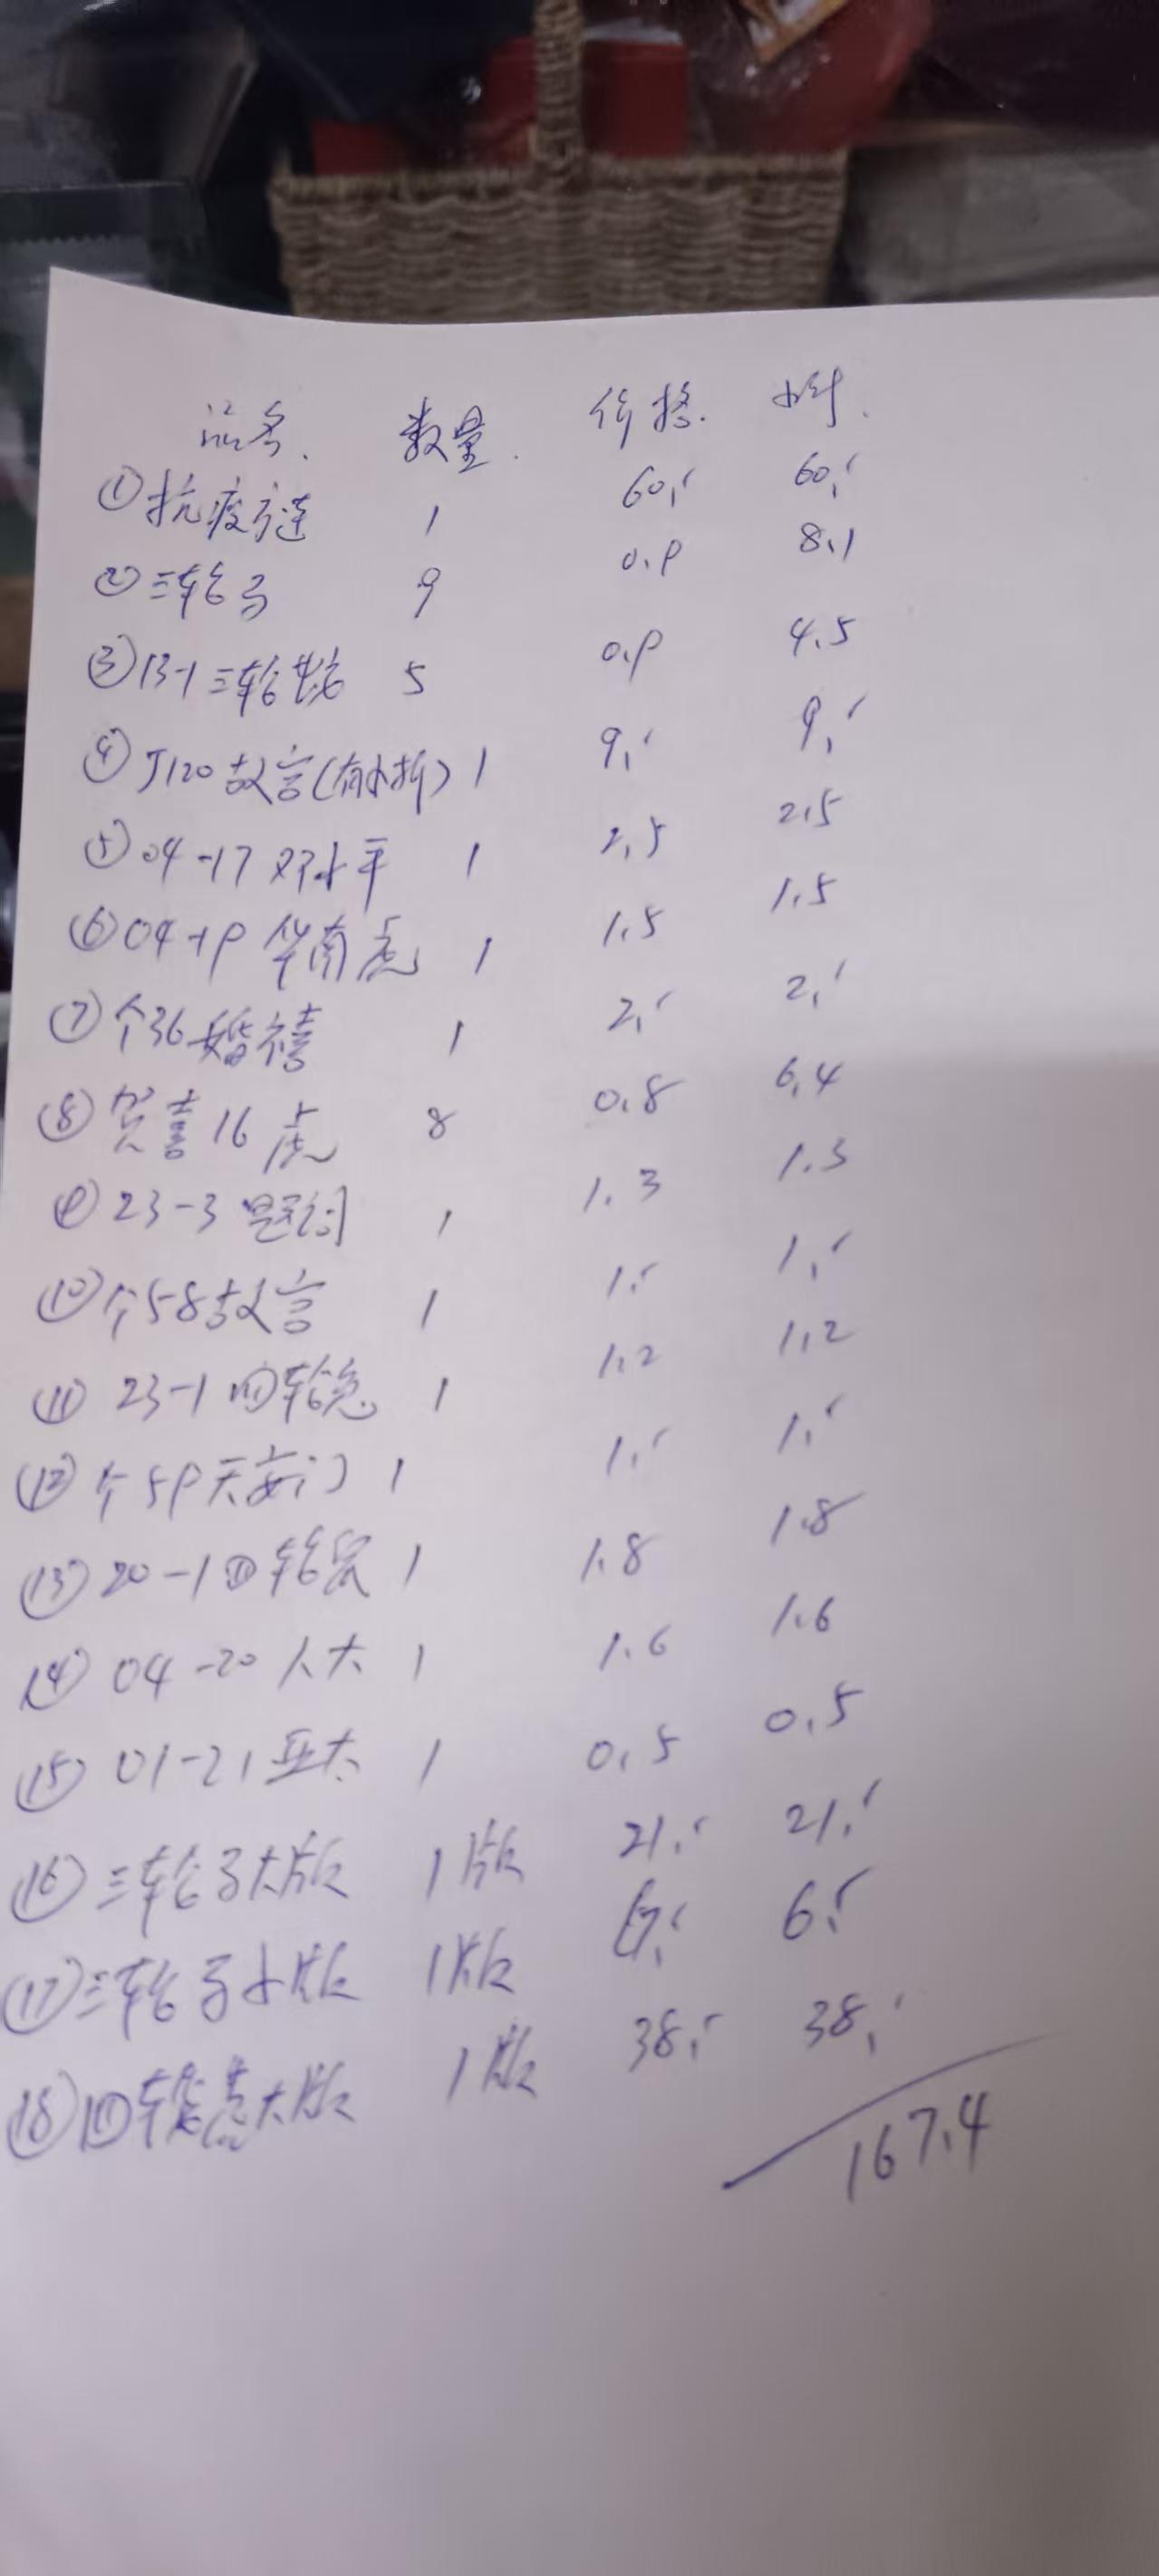 品名. 数量. 价格. 小计.
①抗疫方连 1 60.- 60.-
②三轮马 9 0.9 8.1
③13-1三轮蛇 5 0.9 4.5
④J120故宫(有小折) 1 9.- 9.-
⑤04-17邓小平 1 2.5 2.5
⑥04-19华南虎 1 1.5 1.5
⑦个36婚禧 1 2.- 2.-
⑧贺喜16虎 8 0.8 6.4
⑨23-3题词 1 1.3 1.3
⑩个58故宫 1 1.- 1.-
⑪23-1四轮兔 1 1.2 1.2
⑫个59天安门 1 1.- 1.-
⑬20-1四轮鼠 1 1.8 1.8
⑭04-20人大 1 1.6 1.6
⑮01-21亚太 1 0.5 0.5
⑯三轮马大版 1版 21.- 21.-
⑰三轮马小版 1版 6.- 6.-
⑱四轮大版 1版 38.- 38.-
167.4